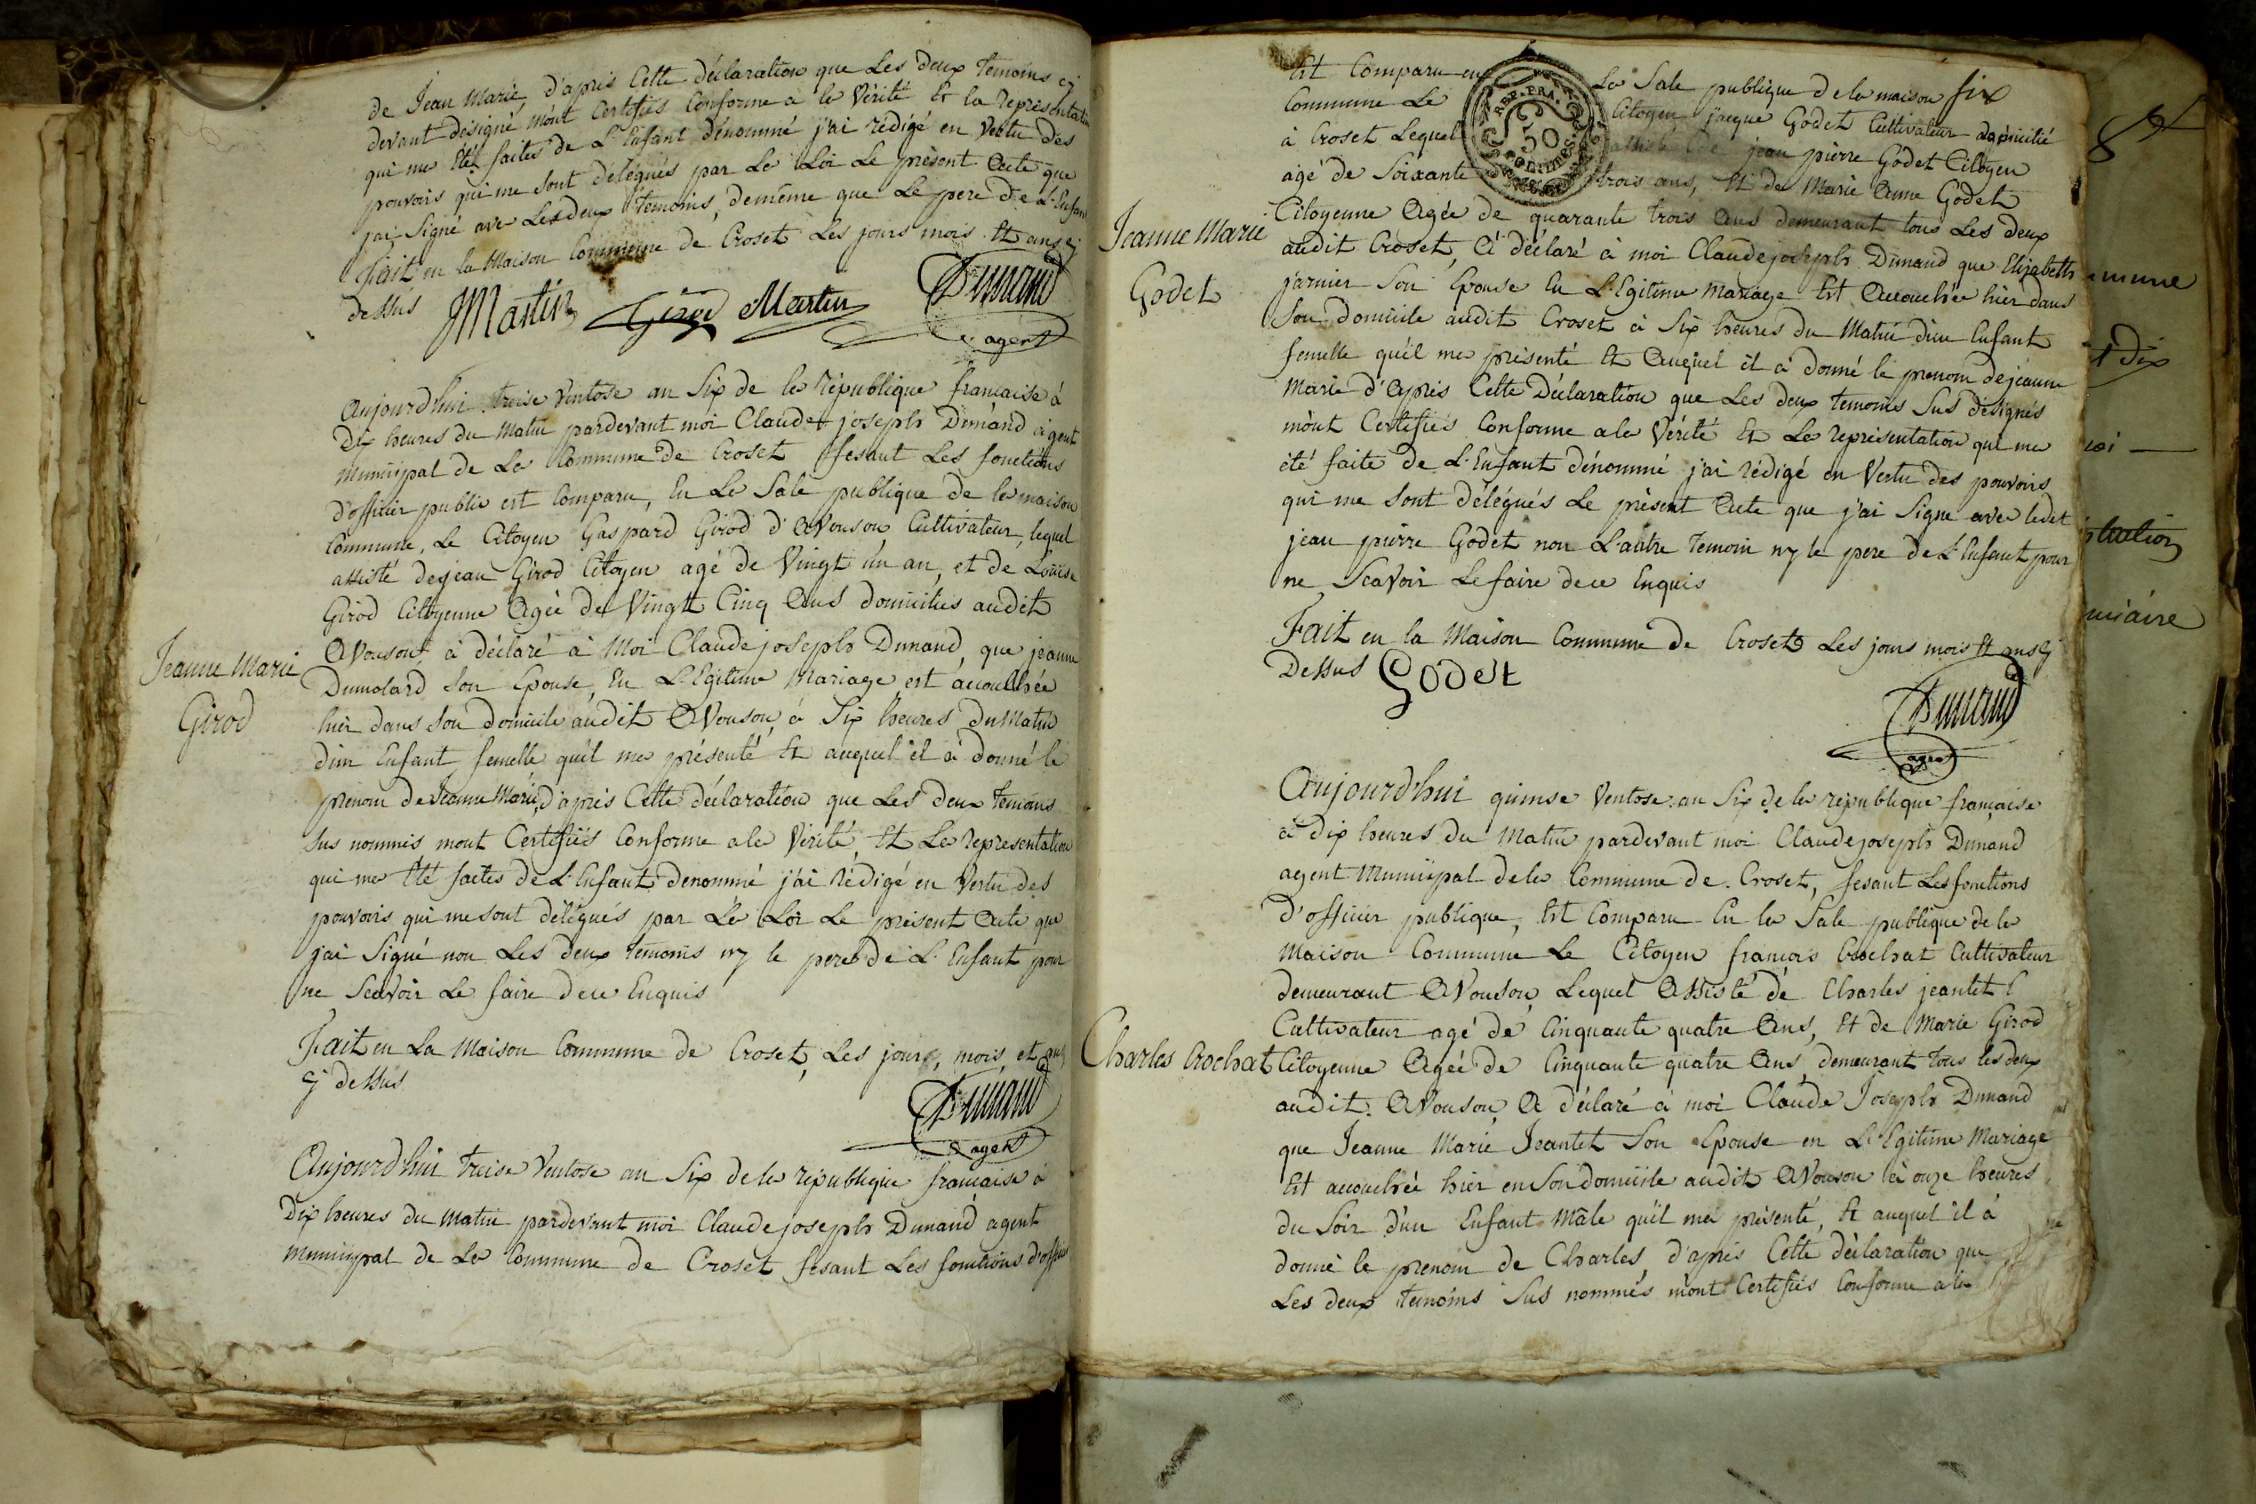 de Jean Marie, d'après Cette déclaration que Les deux temoins cy
devant designé m'ont Certifiés Conforme à la Vérité Et la représentation
qui me Été faites de L'Enfant dénommé j'ai rédigé en Vertu des
pouvoirs qui me sont délégués par La Loi Le présent Acte que
j'ai Signé avec Les deux temoins, demême que Le pere de L'Enfant
Fait en la Maison Commune de Croset Les jours mois Et ans cy
dessus JMartin Girod Martin Dunand
agent
Aujourd'hui treise Ventose an Six de la république francaise à
Dix heures du Matin pardevant moi Claude joseph Dunand agent
Municipal de La Commune de Croset fesant Les fonctions
d'officier public est Comparu, En La Sale publique de la maison
Commune, Le Citoyen Gaspard Girod d'Avouson Cultivateur, lequel
assisté de jean Girod Citoyen agé de Vingt un an, et de Louise
Girod Citoyenne Agée de Vingt Cinq Ans domiciliés audit
Avouson, à déclaré à Moi Claude joseph Dunand, que jeanne
Dumolard Son Epouse, En L'Egitime Mariage est accouchée
hier dans Son domicile audit Avouson, à Six heures du Matin
d'un Enfant femelle qu'il ma présenté Et auquel il à donné le
prenom de Jeanne Marie, d'après Cette déclaration que Les deux temoins
Sus nommés mont Certifiés Conforme a la Vérité, Et La représentation
qui me Été faites de L'Enfant denommé j'ai rédigé en Vertu des
pouvoirs qui me sont délégués par La Loi Le présent Acte que
j'ai Signé non Les deux temoins ny le pere de L'Enfant pour
ne Scavoir Le faire de ce Enquis
Fait en La Maison Commune de Croset, Les jours, mois, et ans
cy dessus
Dunand
agent
Jeanne Marie
Girod
Aujourd'hui treise Ventose an Six de la république francaise à
Dix heures du Matin pardevant moi Claude joseph Dunand agent
municipal de La Commune de Croset fesant Les fonctions d'officier
Est Comparu en La Sale publique de la maison
Commune Le Citoyen jacque Godet Cultivateur domicilié
à Croset Lequel jean pierre Godet Citoyen
agé de Soixante trois ans, Et de Marie Anne Godet
Citoyenne Agée de quarante trois Ans demeurant tous Les deux
audit Croset, à déclaré à moi Claude joseph Dunand que Elizabeth
jarnier Son Epouse En L'Egitime Mariage Est Accouchée hier dans
Son domicile audit Croset à Six heures du Matin d'un Enfant
femelle qu'il ma présenté Et Auquel il à donné le prenom de jeanne
Marie d'après Cette Déclaration que Les deux temoins Sus désignés
mont Certifiés Conforme a la Vérité Et La représentation qui me
été faite de L'Enfant dénommé j'ai rédigé en Vertu des pouvoirs
qui me Sont délégués Le présent Acte que j'ai Signé avec ledit
jean pierre Godet non L'autre temoin ny le pere de L'Enfant pour
ne Scavoir Le faire de ce Enquis
Fait en la Maison Commune de Croset Les jours mois Et ans cy
Dessus Godet
Dunand
agent
Jeanne Marie
Godet
REP. FRA.
50
CENTIMES
Aujourd'hui quinse Ventose an Six de la république française
à dix heures du Matin pardevant moi Claude joseph Dunand
agent Municipal de la Commune de Croset, fesant Les fonctions
d'officier publique, Est Comparu En la Sale publique de la
Maison Commune Le Citoyen francois Crochat Cultivateur
demeurant Avouson, Lequel Assisté de Charles jeantet
Cultivateur agé de Cinquante quatre Ans, Et de Marie Girod
Citoyenne Agée de Cinquante quatre Ans demeurant tous les deux
audit Avouson, A déclaré à moi Claude Joseph Dunand
que Jeanne Marie Jeantet Son Epouse en L'Egitime Mariage
Est accouchée hier en Son domicile audit Avouson à onze heures
du Soir d'un Enfant Mâle qu'il ma présenté, Et auquel il à
donné le prenom de Charles, d'après Cette déclaration que
Les deux temoins Sus nommés mont Certifiés Conforme a la
Charles Crochat